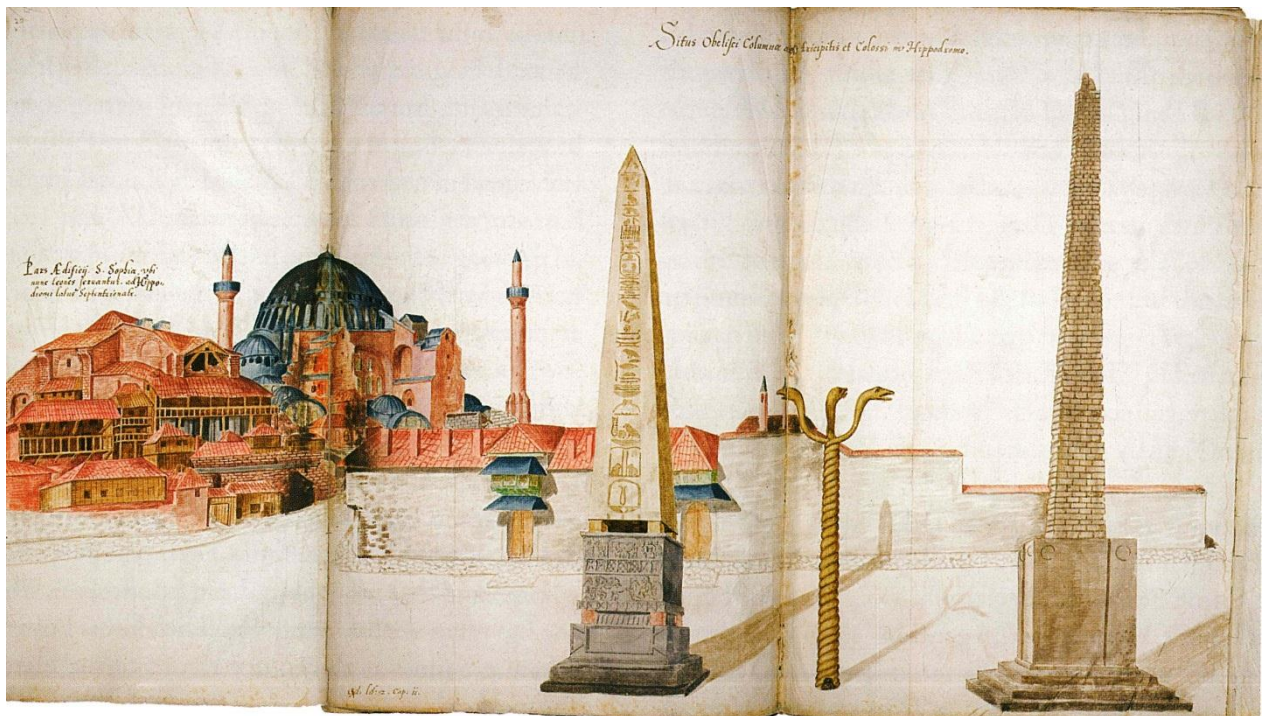 Situs Obelisci Columnæ tricipitis et Colossi in Hippodromo.
Pars Ædificij S. Sophiæ, vbi
nunc leones servantur. ad Hippo-
dromi latus Septentrionale.
Cap. II.